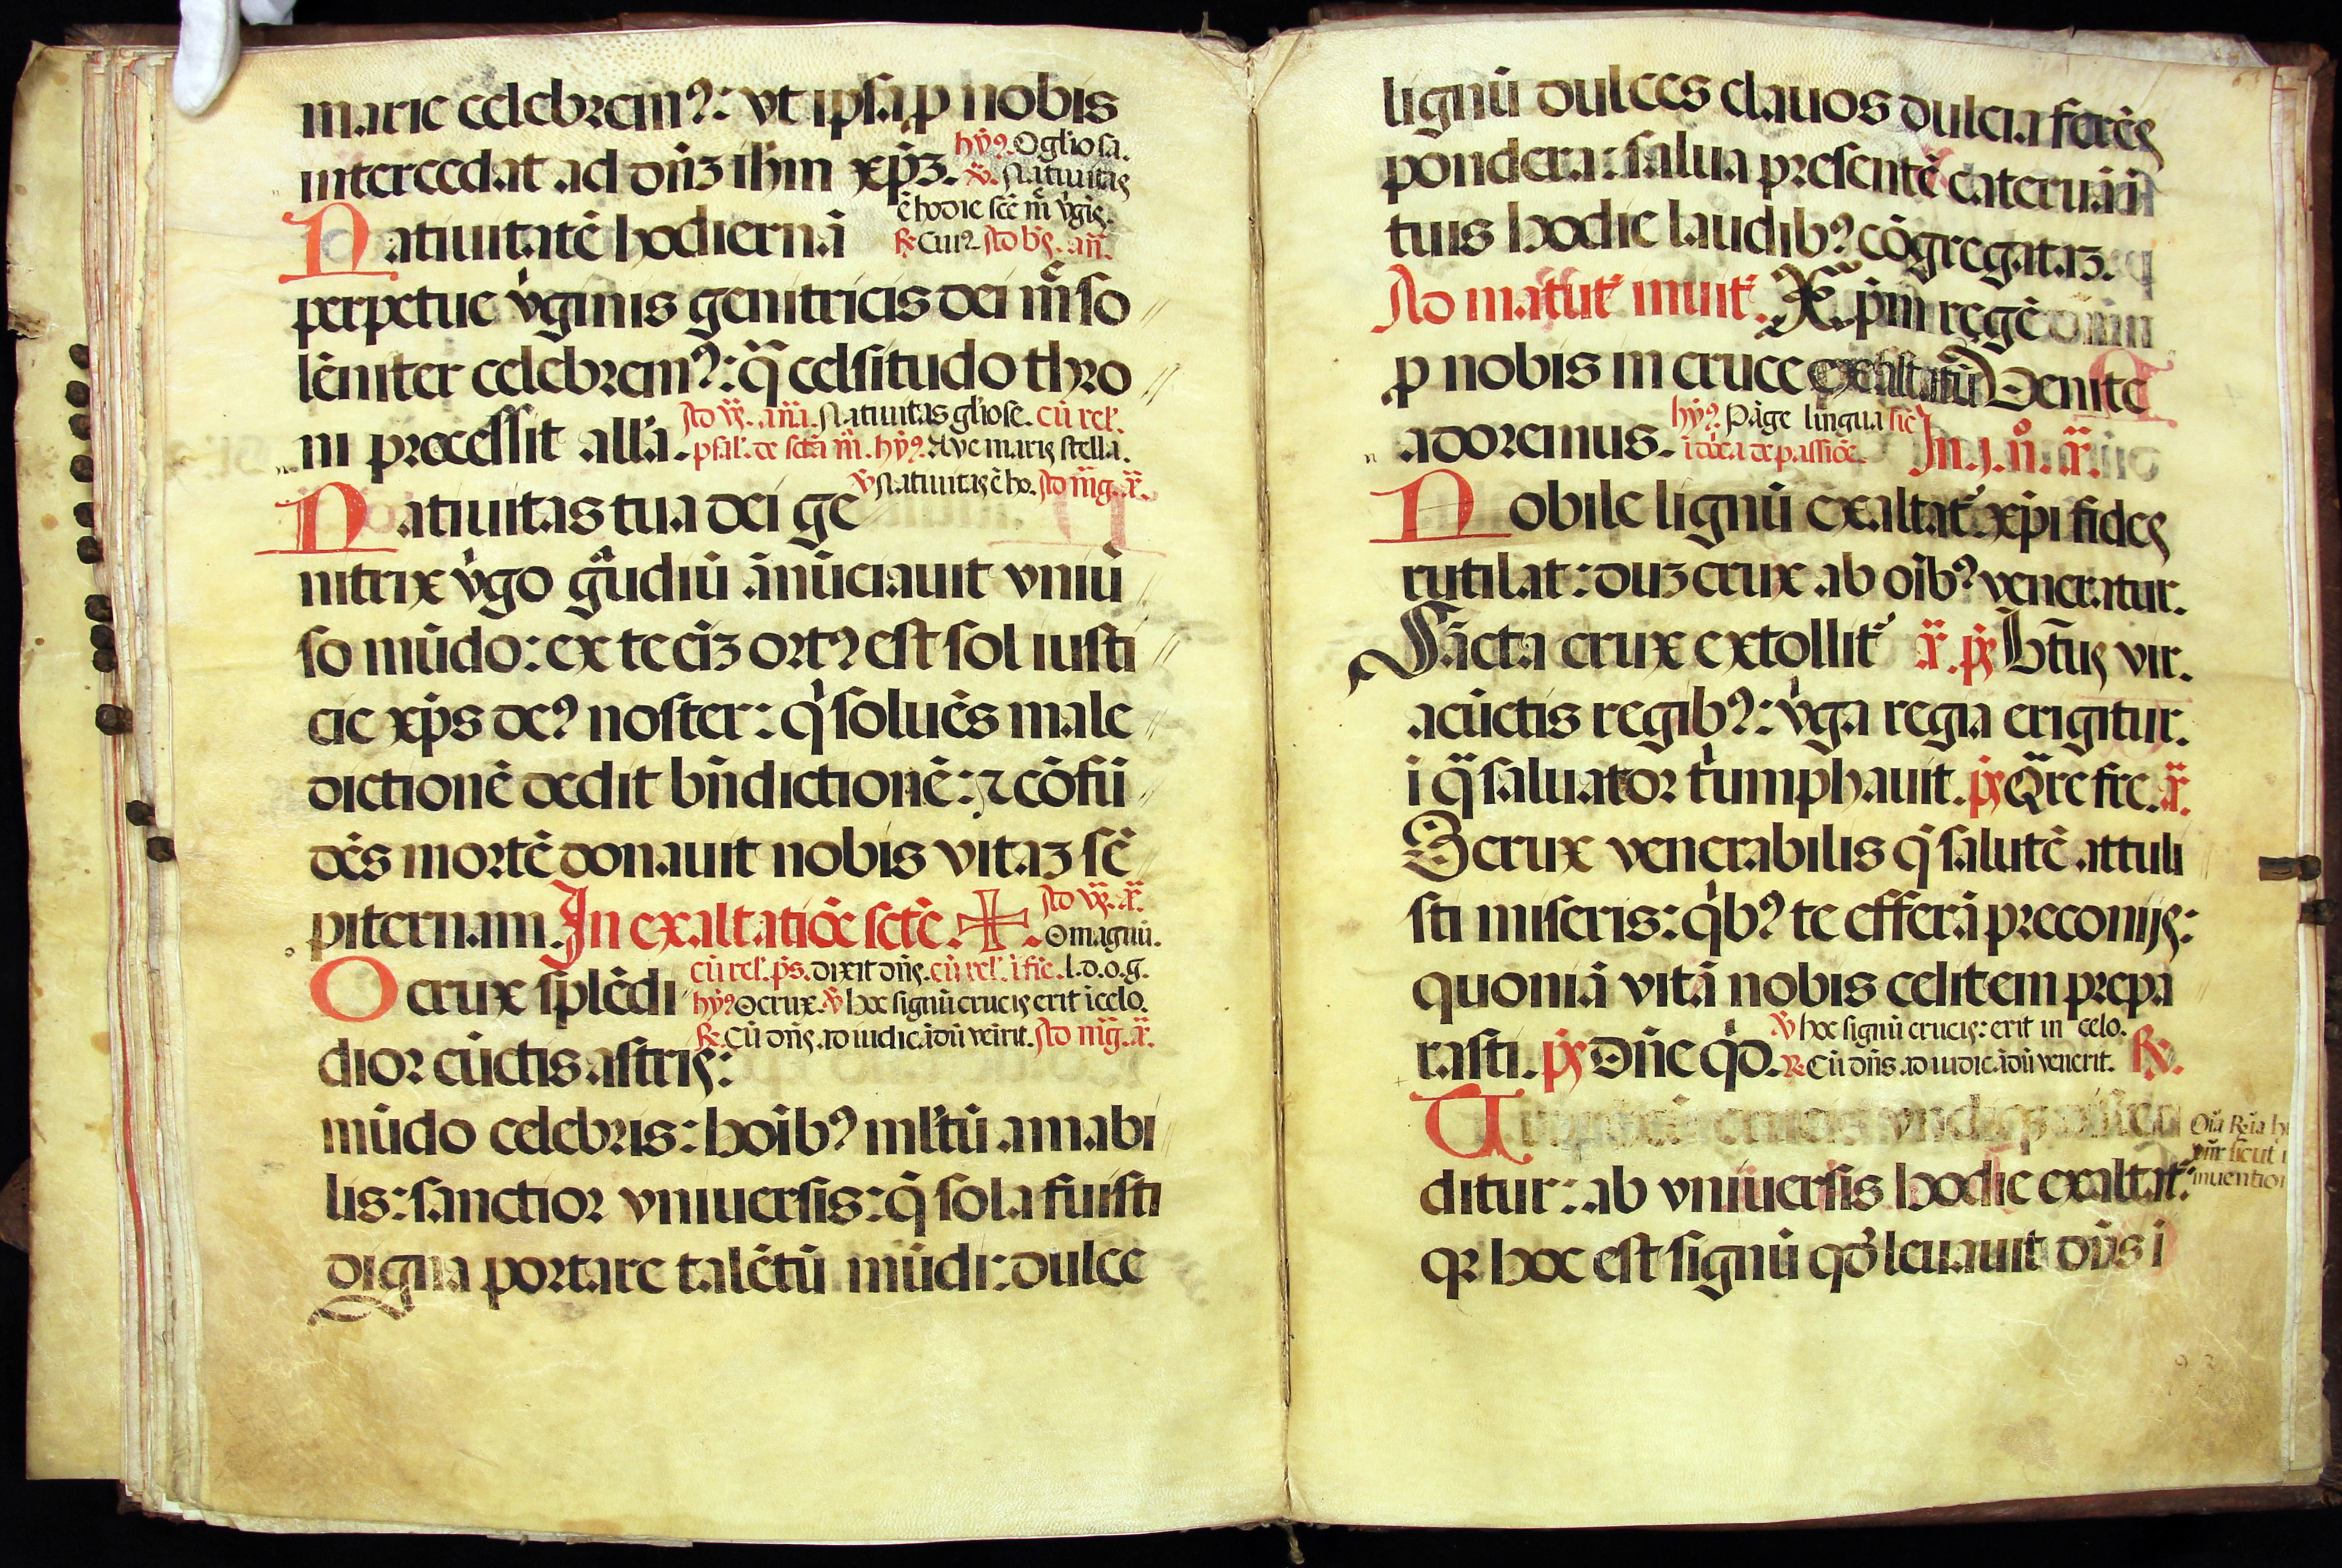 marie celebrem⁹: vt ipsa ꝑ nobis
hỹ⁹. O gl'iosa.
intercedat ad dñȝ ihm̄ xp̄ȝ. ℣. Natiuitas
ē hodie scē m̄ v̓gĩs.
Natiuitatē hodiernā ℟ Cui⁹. Ad bñs. añ.
perpetue v̓ginis genitricis dei m̄ so
lēniter celebrem⁹: q̄ celsitudo thro
Ad vp̄s. am̄a. Natiuitas gl'iose. cū rel'.
ni processit all'a. psal'. de sctā m̄. hỹ⁹. Aue maris stella.
℣ Natiuitas ē ho. Ad m̄g. ã.
Natiuitas tua dei ge
nitrix v̓go gãudiū ānūciauit vniū
so mūdo: ex te eīȝ ort⁹ est sol iusti
cie xp̄s de⁹ noster: q̓ soluēs male
dictionē dedit bñdictionē: ⁊ cōfū
dēs mortē donauit nobis vitaȝ sē
Ad vp̄s. ã.
piternam. In exaltatiōe sctē. ✠. O magnū.
cū rel'. ps̄. dixit dñs. cū rel'. ī fić. l.d.o.g.
O crux splēdi hỹ⁹ O crux. ℣ hoc signū crucis erit ī celo.
℟. Cū dñs. ad iudicādū vēirit. Ad m̄g. ã.
dior cūctis astris:
mūdo celebris: hoīb⁹ ml'tū amabi
lis: sanctior vniuersis: q̄ sola fuisti
digna portare talētū mūdi: dulce
lignū dulces clauos dulcia ferēs
pondera: salua presentē cateruā ī
tuis hodie laudib⁹ cōgregataȝ.
Ad matut̓ inuit̓. Xp̄m regē
ꝑ nobis in cruce exaltatū Uenite
hỹ⁹. Pāge lingua sić
adoremus. ī dōca de passiōe. In .j. n̊. ã.
Nobile lignū exaltat̓ xp̄i fides
rutilat: duȝ crux ab oīb⁹ veneratur.
Sācta crux extollit̓ ã. ps̄ Bt̄us vir.
a cūctis regib⁹: v̓ga regia erigitur.
ī q̄ saluator t̓umphauit. ps̄ Q̄re fre. ã.
O crux venerabilis q̄ salutē attuli
sti miseris: q̓b⁹ te efferā preconijs:
quoniā vitā nobis celitem prepa
℣ hoc signū crucis: erit in celo.
rasti. ps̄ Dñe q̓d. ℟ Cū dñs. ad iudicādū venerit. ℟.
ditur: ab vniuersis hodie exaltat̓:
qꝛ hoc est signū qd̓ leuauit dñs ī